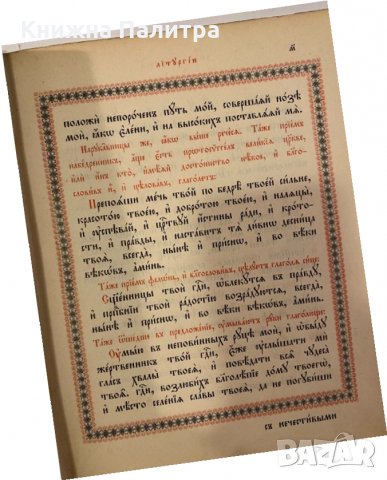 Книжна Палитра
литꙋргіи
м҃
положѝ непоро́ченъ пꙋ́ть мо́й, соверша́ѧй но́зѣ
мои̑, ꙗ҆́кѡ є҆ле́ни, и҆ на высо́кихъ поставлѧ́ѧй мѧ̀.
Нарꙋка̑вницы же, ꙗ҆́кѡ вы́ше рече́сѧ. Та́же прїе́мъ
набе́дренникъ, а҆́ще є҆́сть прѡтосѵ́ггелъ вели́кїѧ це́ркве,
и҆лѝ и҆́нъ кто̀, и҆мѣ́ѧй досто́инство нѣ́кое, и҆ бл҃го-
слови́въ и҆̀, и҆ цѣлова́въ, глаго́летъ:
Препоѧ́ши ме́чь тво́й по бедрѣ̀ твое́й си́льне,
красото́ю твое́ю, и҆ добро́тою твое́ю, и҆ налѧцы̀,
и҆ ᲂу҆спѣва́й, и҆ црⷭ҇твꙋй и҆́стины ра́ди, и҆ кро́то-
сти, и҆ пра́вды, и҆ наста́витъ тѧ̀ ди́внѡ десни́ца
твоѧ̀, всегда̀, ны́нѣ и҆ при́снѡ, и҆ во вѣ́ки
вѣкѡ́въ, а҆ми́нь.
Та́же прїе́мъ фелѡ́нь, и҆ бл҃гослови́въ, цѣлꙋ́етъ глаго́лѧ си́це:
Сщ҃е́нницы твоѝ гдⷭ҇и, ѡ҆блекꙋ́тсѧ въ пра́вдꙋ,
и҆ прпⷣбнїи твоѝ ра́достїю возра́дꙋютсѧ, всегда̀,
ны́нѣ и҆ при́снѡ, и҆ во вѣ́ки вѣкѡ́въ, а҆ми́нь.
Та́же ѿше́дше въ предложе́нїе, ᲂу҆мыва́ютъ рꙋ́ки глаго́люще:
Оу҆мы́ю въ непови́нныхъ рꙋ́цѣ моѝ, и҆ ѡ҆бы́дꙋ
же́ртвенникъ тво́й гдⷭ҇и, є҆́же ᲂу҆слы́шати мѝ
гла́съ хвалы̀ твоеѧ̀, и҆ повѣ́дати всѧ̑ чꙋдеса̀
твоѧ̑. гдⷭ҇и, возлюби́хъ бл҃голѣ́пїе до́мꙋ твоегѡ̀,
и҆ мѣ́сто селе́нїѧ сла́вы твоеѧ̀, да не погꙋби́ши
съ нечести́выми
BAZAR